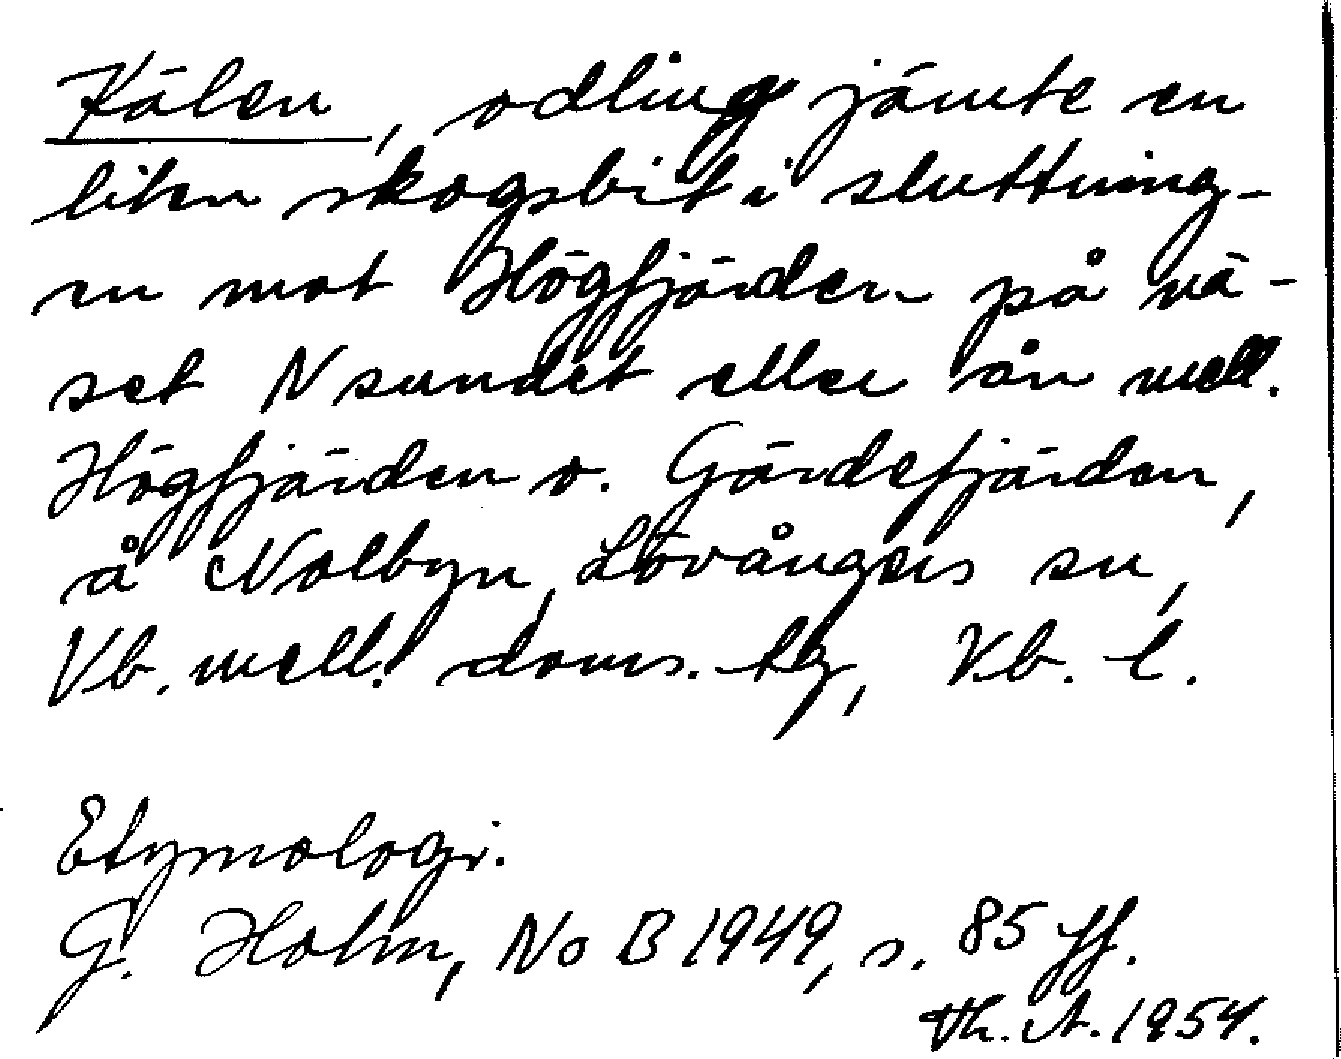 Kälen, odling jämte en
liten skogsbit i sluttning-
en mot Högfjärden på nä-
set N sundet eller ån mell.
Högfjärden o. Gärdefjärden,
å Nolbyn, Lövångers sn,
Vb. mell. doms. tg, Vb. l.
Etymologi.
G. Holm, NoB 1949, s. 85 ff.
Th. A. 1954.